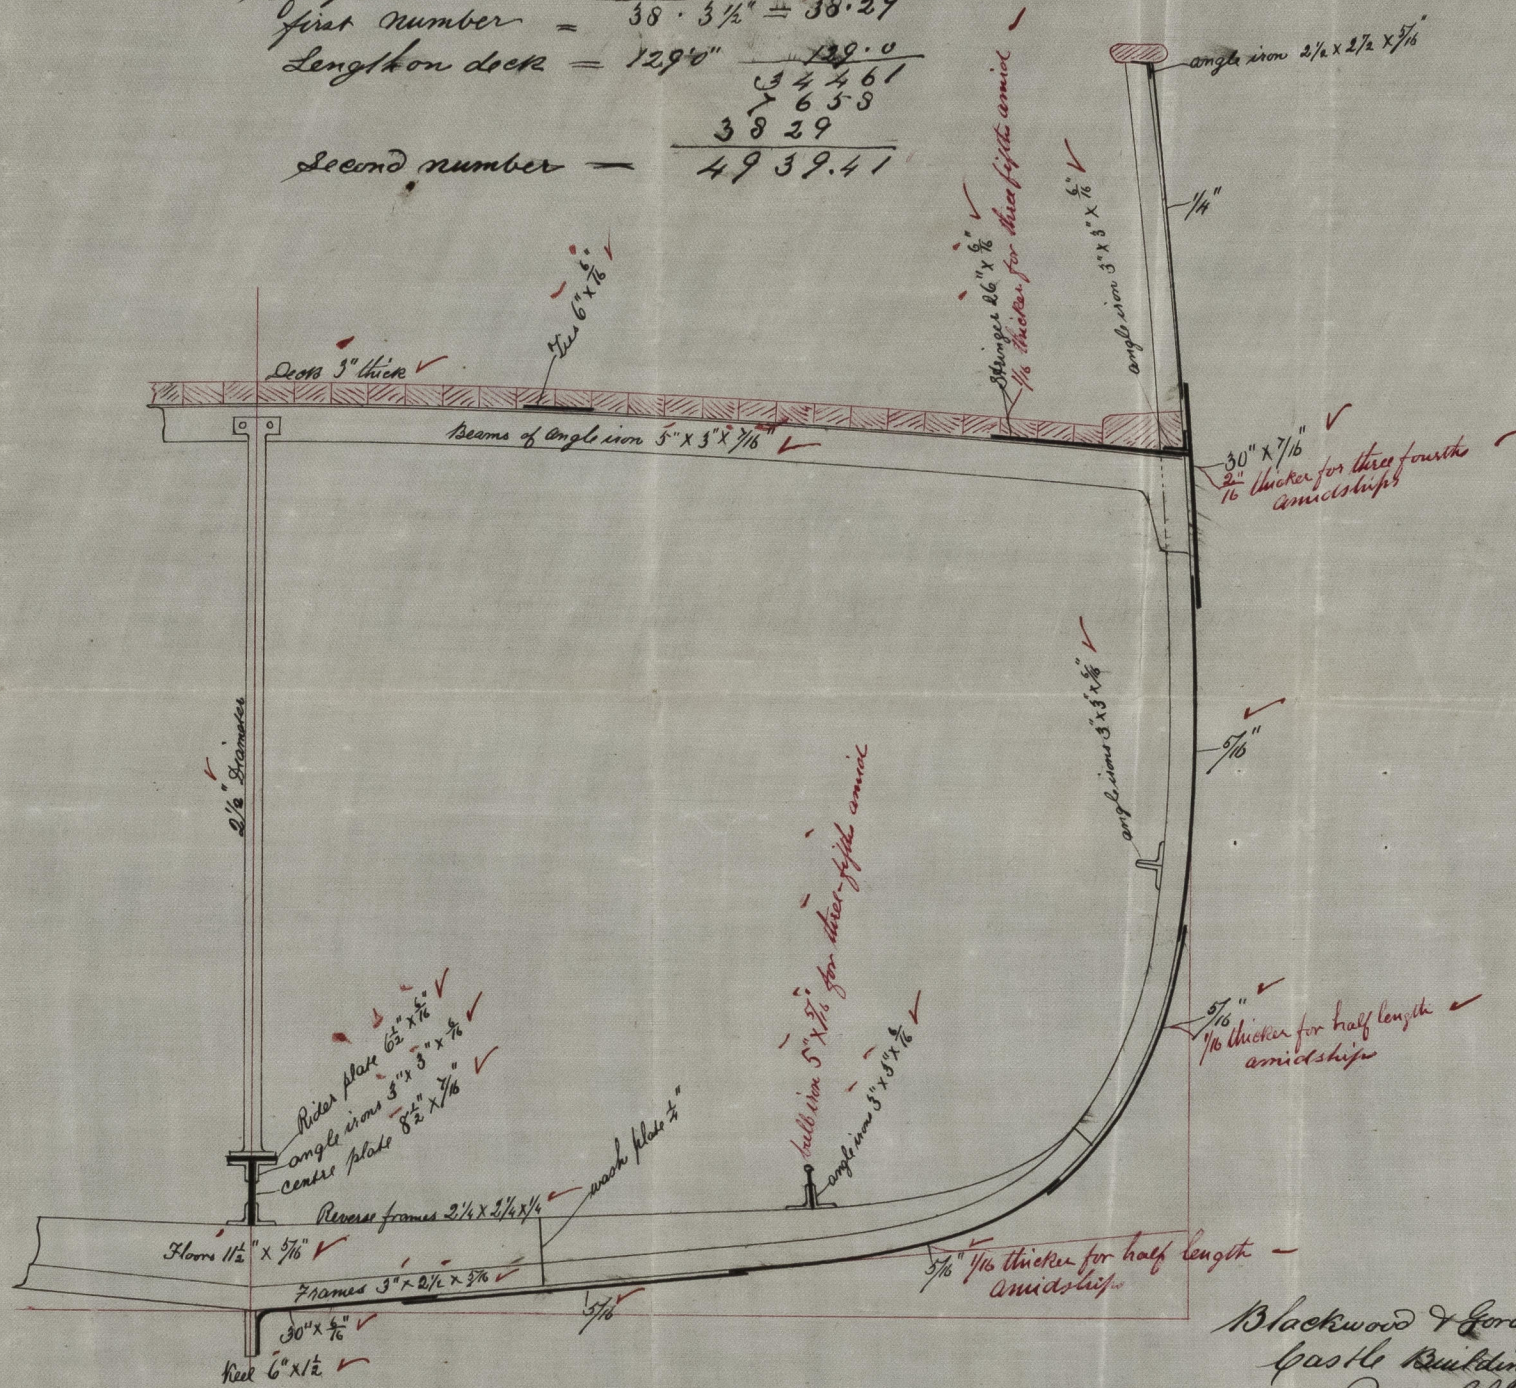 first number = 38 · 3½" = 38·29
Length on deck = 129'0" 129·0
34461
7658
3829
Second number = 4939.41
angle iron 2½ × 2½ × 5/16"
¼"
angle iron 3" × 3" × 6/16"
Stringer 26" × 6/16"
1/16 thicker for three fifths amid
Ties 6" × 6/16"
Deck 3" thick
Beams of angle iron 5" × 3" × 7/16"
30" × 7/16"
2/16" thicker for three fourths
amidships
angle irons 3" × 3" × 6/16"
5/16"
2½" Diameter
5/16"
1/16 thicker for half length
amidships
bulb iron 5" × 5/16" for three-fifths amid
angle irons 3" × 3" × 6/16"
Rider plate 6½" × 6/16"
angle irons 3" × 3" × 6/16
centre plate 8½" × 7/16"
wash plate ¼"
Reverse frames 2¼ × 2¼ × ¼
Floors 11½" × 5/16"
Frames 3" × 2½ × 5/16
5/16" 1/16 thicker for half length
amidships
5/16"
30" × 6/16"
Keel 6" × 1½
Blackwood & Gor
Castle Buildin